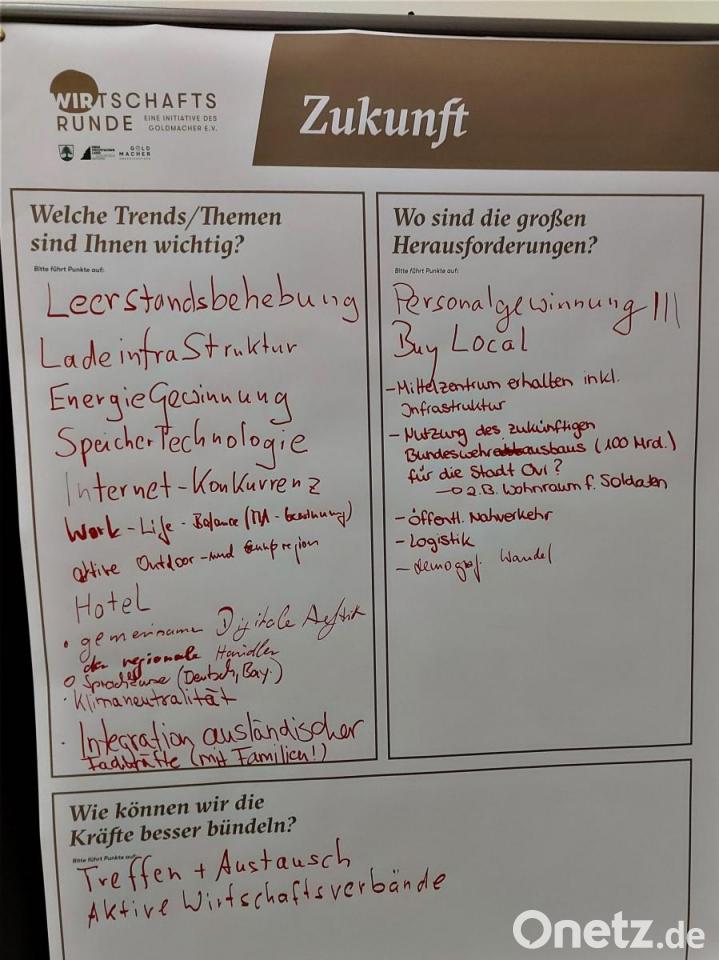 WIRTSCHAFTS
RUNDE
EINE INITIATIVE DES
GOLDMACHER E.V.
GOLD
MACHER
Zukunft
Welche Trends/Themen
sind Ihnen wichtig?
Bitte führt Punkte auf:
Leerstandsbehebung
LadeinfraStruktur
EnergieGewinnung
SpeicherTechnologie
Internet-Konkurrenz
Work-Life-Balance (MA-Gewinnung)
aktive Outdoor- und
Hotel
• gemeinsame Digitale Auftritt
der regionale Händler
Sprachkurse (Deutsch, Bay.)
· Klimaneutralität
· Integration ausländischer
Fachkräfte (mit Familien!)
Wo sind die großen
Herausforderungen?
Bitte führt Punkte auf:
Personalgewinnung |||
Buy Local
- Mittelzentrum erhalten inkl.
Infrastruktur
- Nutzung des zukünftigen
Bundeswehrausbaus (100 Mrd.)
für die Stadt Ovi?
z.B. Wohnraum f. Soldaten
- Öffentl. Nahverkehr
- Logistik
- demograf. Wandel
Wie können wir die
Kräfte besser bündeln?
Bitte führt Punkte auf:
Treffen + Austausch
Aktive Wirtschaftsverbände
Onetz.de